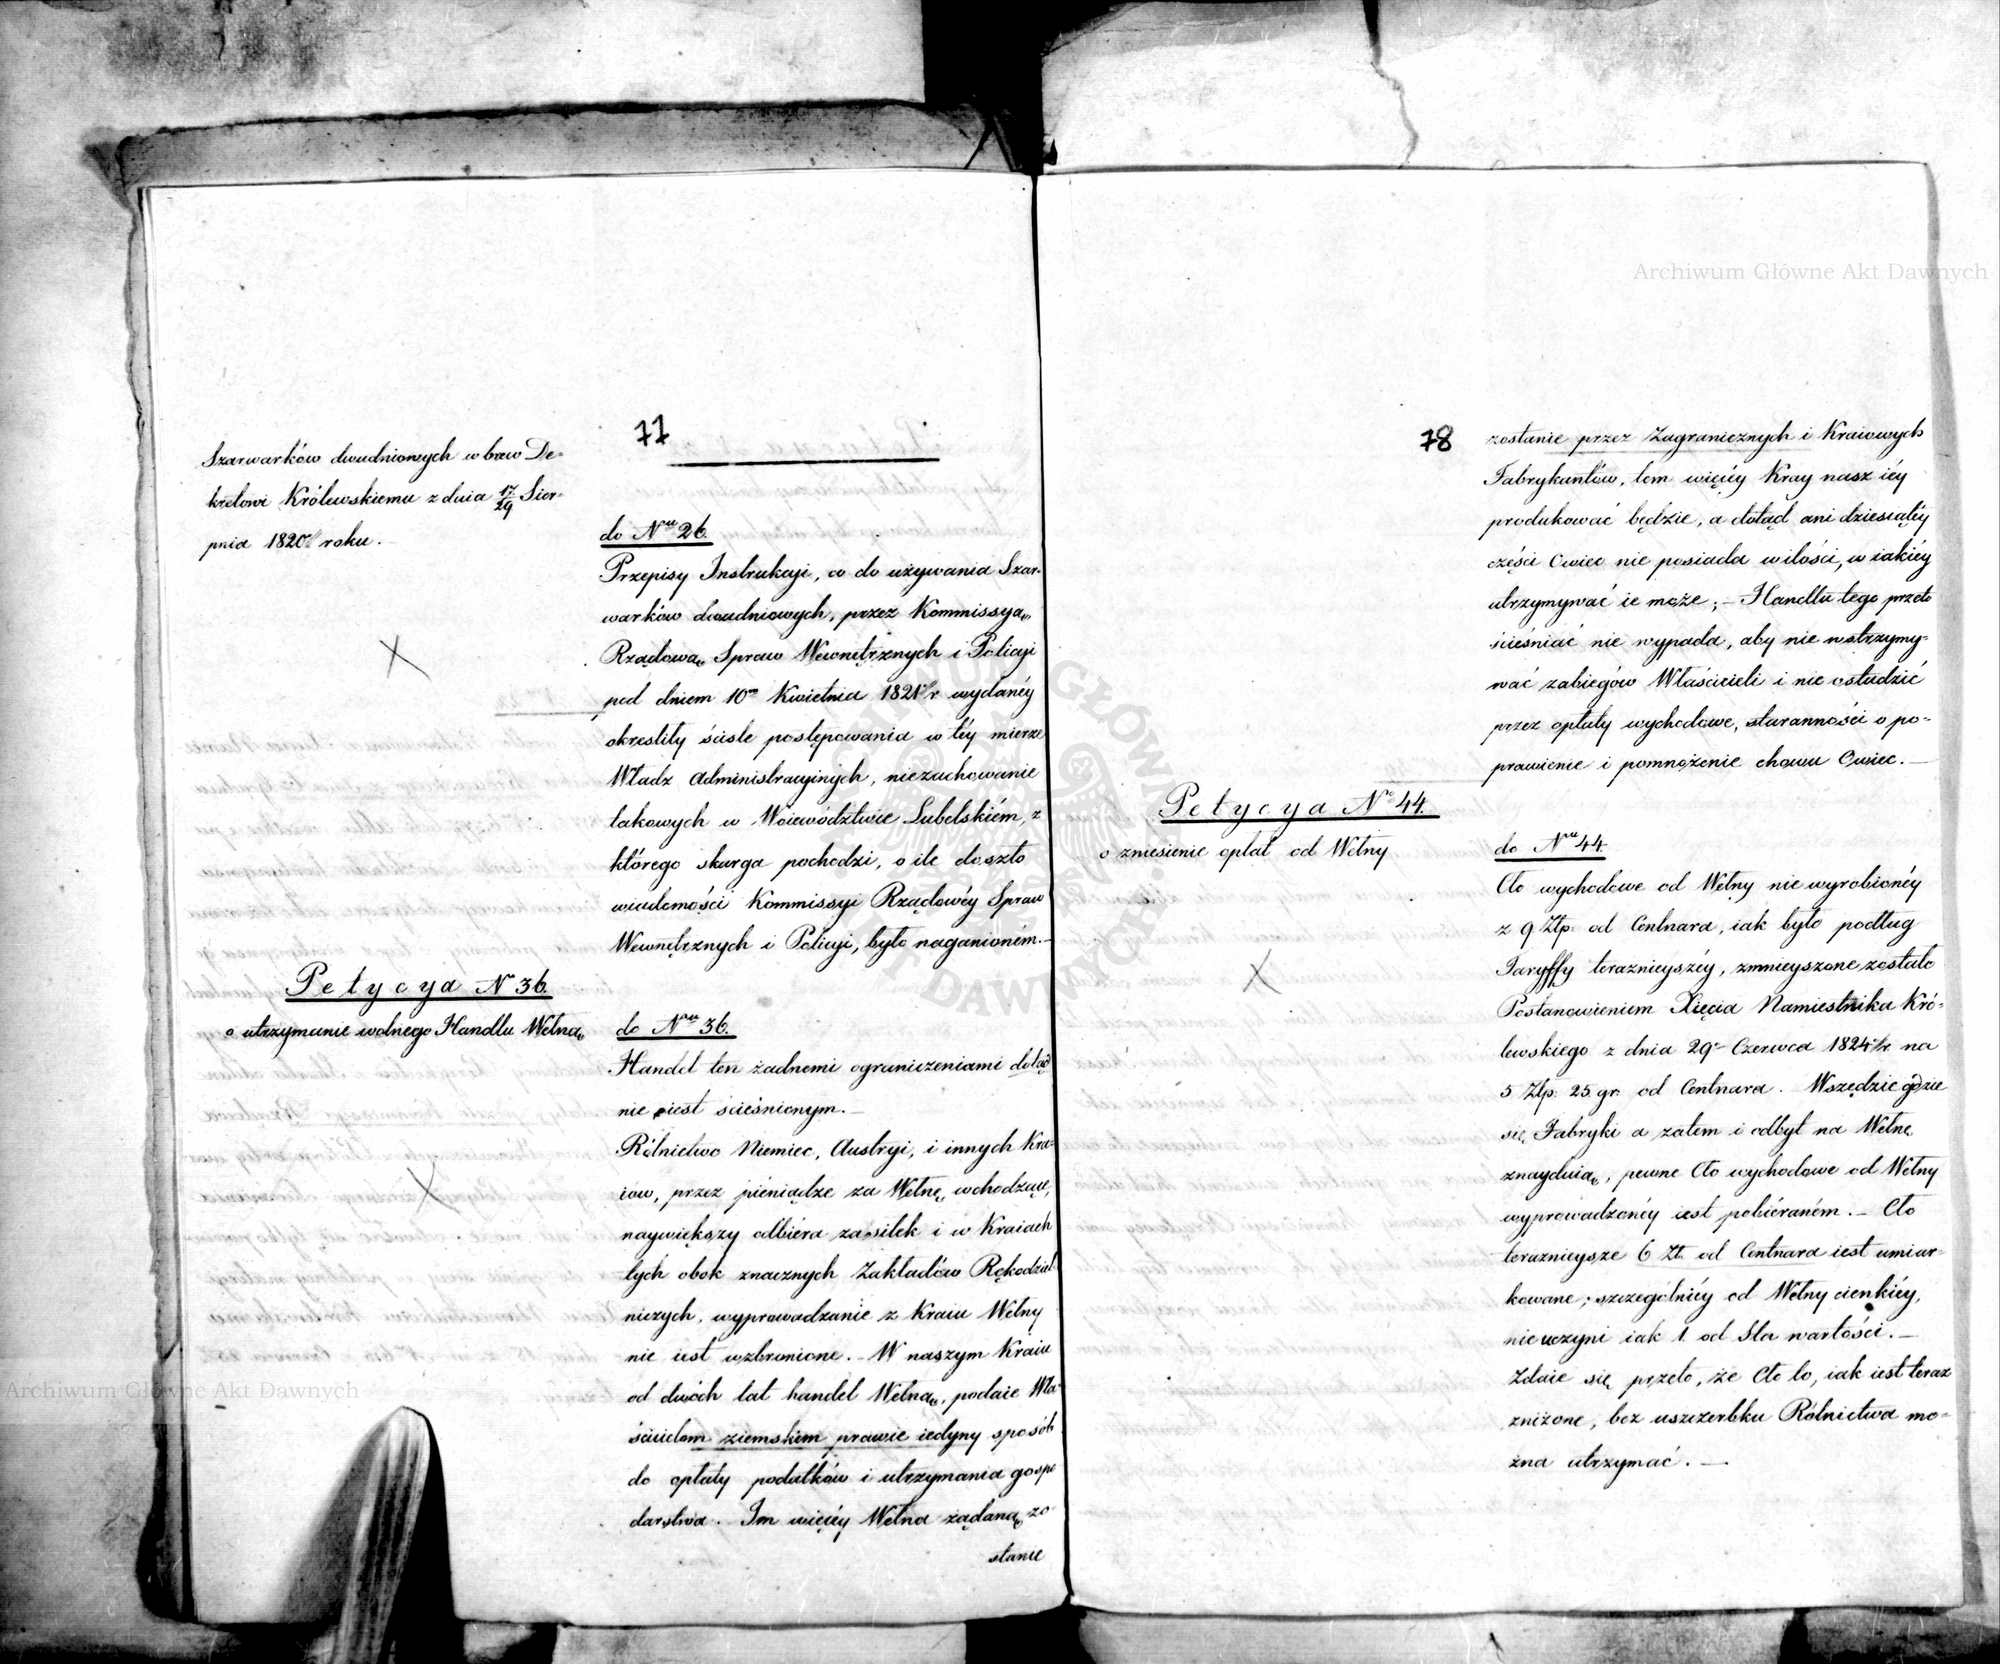 77
Szarwarków dwudniowych wbrew De-
kretowi Królewskiemu z dnia 17/29 Sier-
pnia 1820 roku.
do Nru 26.
Przepisy Instrukcyi, co do używania Szar-
warków dwudniowych, przez Kommissyą
Rządową Spraw Wewnętrznych i Policyi
pod dniem 10m Kwietnia 1821 r wydanéy
określiły ściśle postępowania w téy mierze
Władz Administracyinych, niezachowanie
takowych w Woiewództwie Lubelskiém, z
którego skarga pochodzi, o ile doszło
wiadomości Kommissyi Rządowéy Spraw
Wewnętrznych i Policyi, było naganioném.-
Petycya N 36.
o utrzymanie wolnego Handlu Wełną
do Nru 36.
Handel ten żadnemi ograniczeniami dotąd
nie iest ścieśnionym.-
Rólnictwo Niemiec, Austryi, i innych Kra-
iów, przez pieniądze za Wełnę wchodzące,
naywiększy odbiéra zasiłek i w Kraiach
tych obok znacznych Zakładów Rękodziel-
niczych, wyprowadzanie z Kraiu Wełny
nie iest wzbronione.- W naszym Kraiu
od dwóch lat handel Wełną, podaie Wła-
ścicielom ziemskim prawie iedyny sposób
do opłaty podatków i utrzymania gospo
darstwa. Im więcéy Wełna żądaną zo-
stanie
78
zostanie przez Zagranicznych i Kraiowych
Fabrykantów, tem więcéy Kray nasz iéy
produkować będzie, a dotąd ani dziesiątéy
części Owiec nie posiada w ilości, w iakiéy
utrzymywać ie może; - Handlu tego przeto
ścieśniać nie wypada, aby nie wstrzymy-
wać zabiegów Właścicieli i nie ostudzić
przez opłaty wychodowe, staranności o po-
prawienie i pomnożenie chowu Owiec.-
Petycya No 44.
o zniesienie opłat od Wełny
do Nru 44.
Cło wychodowe od Wełny nie wyrobionéy
z 9 Złp: od Centnara, iak było podług
Taryffy teraznieyszéy, zmnieyszone zostało
Postanowieniem Xięcia Namiestnika Kró-
lewskiego z dnia 29o Czerwca 1824 r. na
5 Złp: 25 gr: od Centnara. Wszędzie gdzie
się Fabryki a zatem i odbyt na Wełnę
znayduią, pewne Cło wychodowe od Wełny
wyprowadzonéy iest pobiéraném.- Cło
teraznieysze 6 Zł. od Centnara iest umiar-
kowane; szczególniéy od Wełny cienkiéy,
nie uczyni iak 1. od Sta wartości.-
Zdaie się przeto, że Cło to, iak iest teraz
zniżone, bez uszczerbku Rólnictwa mo-
żna utrzymać.-
Archiwum Główne Akt Dawnych
Archiwum Główne Akt Dawnych